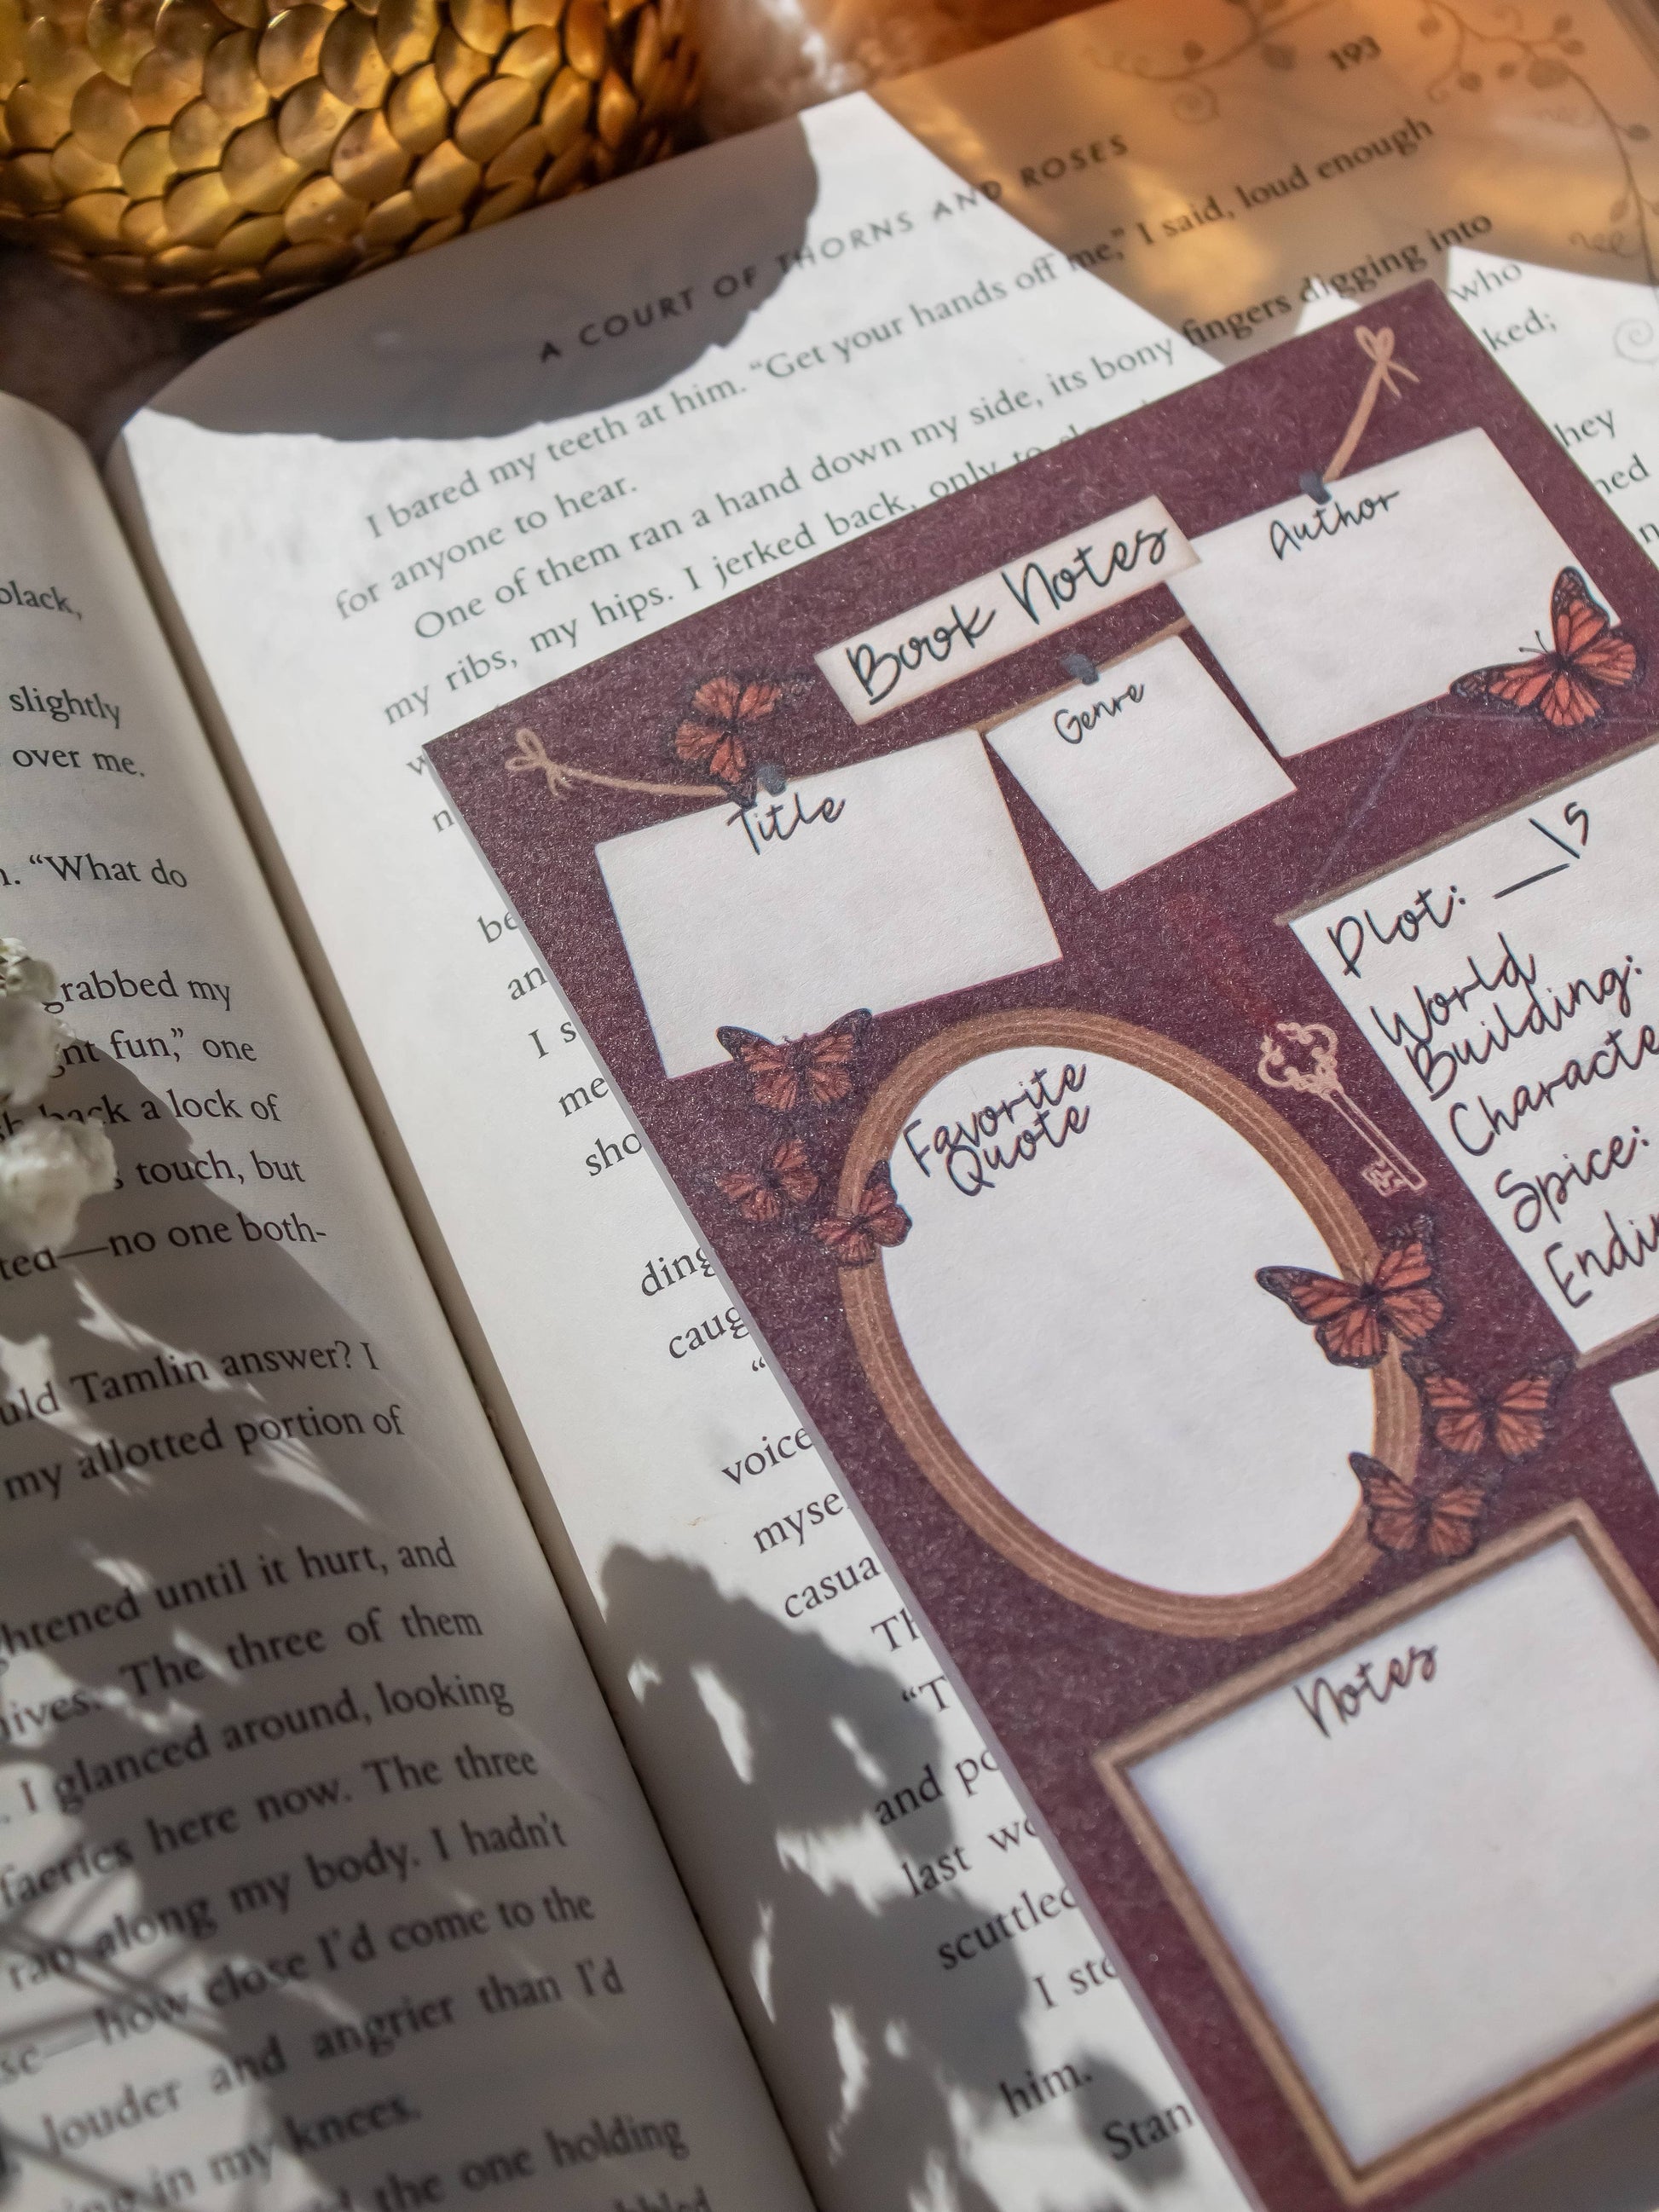 black,
slightly
over me.
“What do
grabbed my
fun,” one
back a lock of
touch, but
no one both-
Tamlin answer? I
my allotted portion of
until it hurt, and
The three of them
I glanced around, looking
faeries here now. The three
ran along my body. I hadn't
how close I'd come to the
louder and angrier than I'd
in my knees.
the one holding
193
A COURT OF THORNS AND ROSES
I bared my teeth at him. “Get your hands off me,” I said, loud enough
for anyone to hear.
One of them ran a hand down my side, its bony fingers digging into
my ribs, my hips. I jerked back, only to
who
ked;
hey
I s
me
sho
ding
caug
voice
myse
casua
“T
and po
last wo
scuttled
I sto
him.
Stan
Book Notes
Title
Genre
Author
Plot: __/5
World
Building:
Characte
Spice:
Endin
Favorite
Quote
Notes